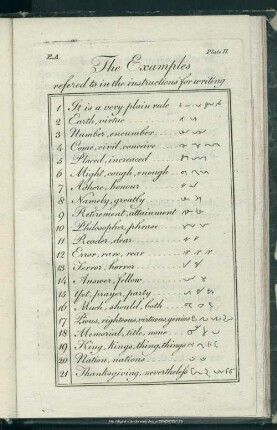 P.A.
Plate II.
The Examples
refered to in the instructions for writing.
1 It is a very plain rule
2 Earth, virtue
3 Number, encumber
4 Come, civil, conceive
5 Placed, increased
6 Might, cough, enough
7 Ashore, honour
8 Namely, greatly
9 Retirement, attainment
10 Philosopher, phrase
11 Reader, dear
12 Error, rare, rear
13 Terror, horror
14 Answer, follow
15 Yet, prayer, party
16 Much, should, both
17 Pious, righteous, virtuous, genius
18 Memorial, title, none
19 King, kings, thing, things
20 Nation, nations
21 Thanksgiving, nevertheless